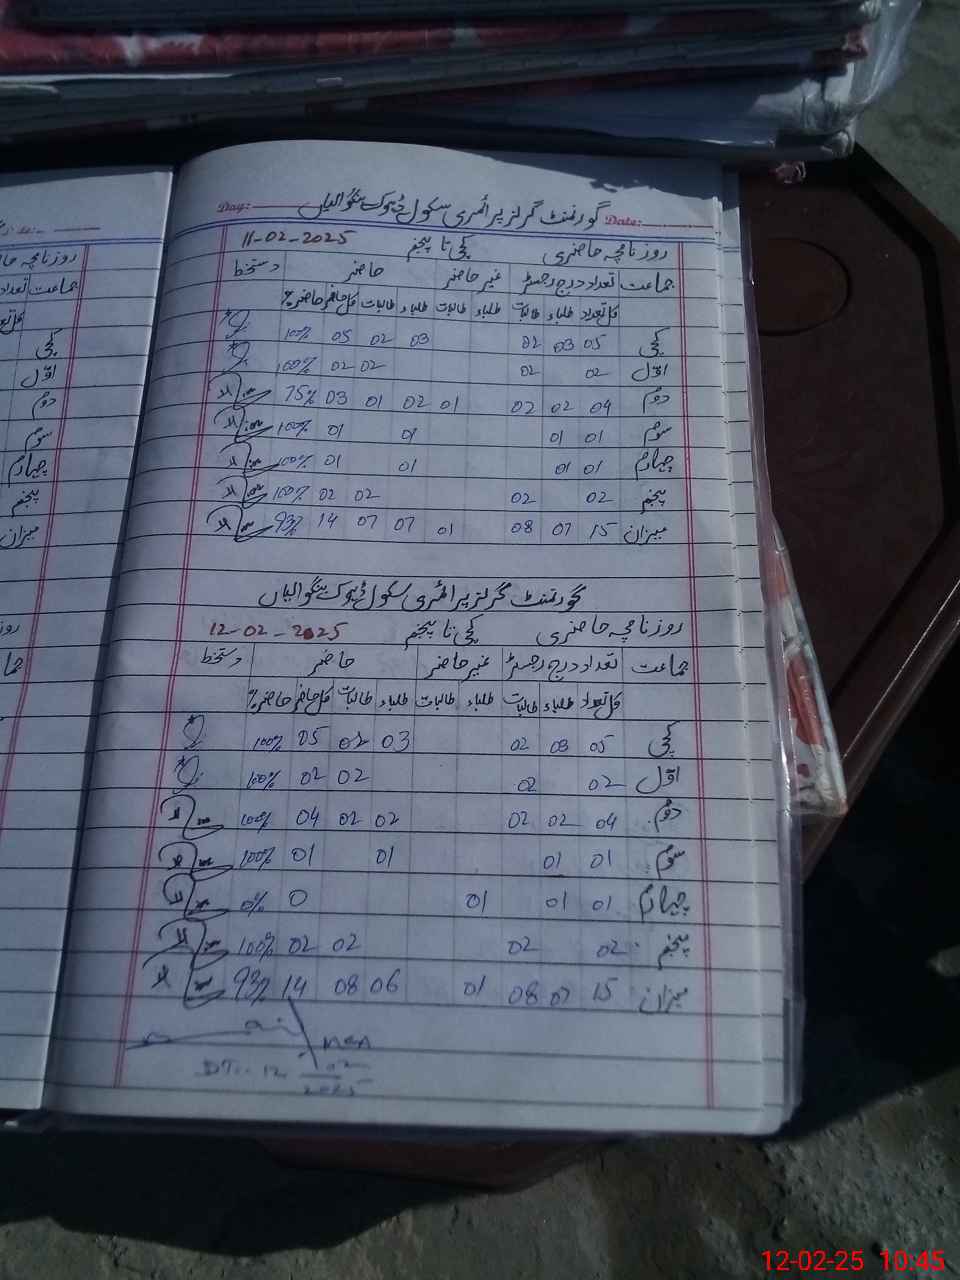 Day: Date:
گورنمنٹ گرلز پرائمری سکول ڈھوک بنگوالیاں
روزنامچہ حاضری کچی تا پنجم 11-02-2025
جماعت تعداد درج رجسٹر غیر حاضر حاضر دستخط
کل تعداد طلباء طالبات طلباء طالبات طلباء طالبات کل حاضر حاضر%
کچی 05 03 02 03 02 05 100%
اوّل 02 02 02 02 100%
دوم 04 02 02 01 02 01 03 75%
سوم 01 01 01 01 100%
چہارم 01 01 01 01 100%
پنجم 02 02 02 02 100%
میزان 15 07 08 01 07 07 14 93%
گورنمنٹ گرلز پرائمری سکول ڈھوک بنگوالیاں
روزنامچہ حاضری کچی تا پنجم 12-02-2025
جماعت تعداد درج رجسٹر غیر حاضر حاضر دستخط
کل تعداد طلباء طالبات طلباء طالبات طلباء طالبات کل حاضر حاضر%
کچی 05 03 02 03 02 05 100%
اوّل 02 02 02 02 100%
دوم 04 02 02 02 02 04 100%
سوم 01 01 01 01 100%
چہارم 01 01 01 0 0%
پنجم 02 02 02 02 100%
میزان 15 07 08 01 06 08 14 93%
MEA
DT:- 12
02
2025
روزنامچہ
جماعت تعداد
کل
کچی
اوّل
دوم
سوم
چہارم
پنجم
میزان
12-02-25 10:45